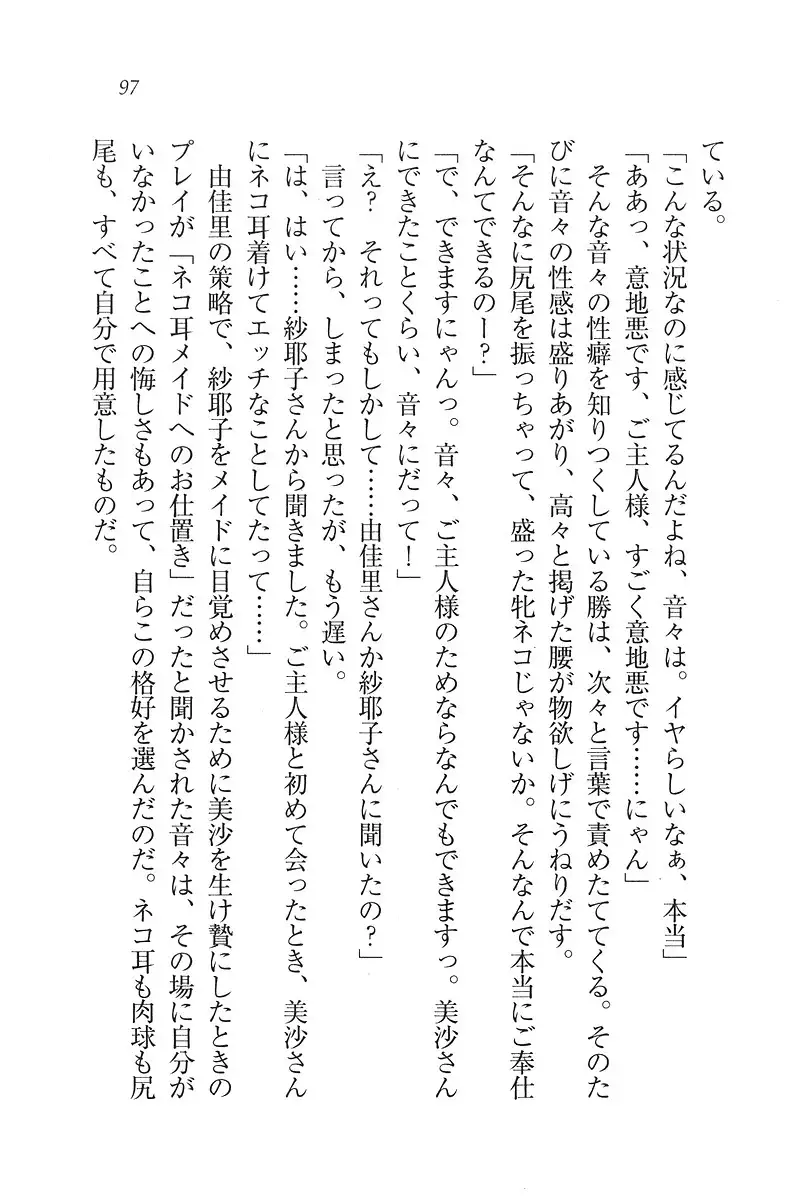 97
ている。
「こんな状況なのに感じてるんだよね、音々は。イヤらしいなぁ、本当」
「ああっ、意地悪です、ご主人様、すごく意地悪です……にゃん」
そんな音々の性癖を知りつくしている勝は、次々と言葉で責めたててくる。そのた
びに音々の性感は盛りあがり、高々と掲げた腰が物欲しげにうねりだす。
「そんなに尻尾を振っちゃって、盛った牝ネコじゃないか。そんなんで本当にご奉仕
なんてできるのー?」
「で、できますにゃんっ。音々、ご主人様のためならなんでもできますっ。美沙さん
にできたことくらい、音々にだって!」
「え?　それってもしかして……由佳里さんか紗耶子さんに聞いたの?」
言ってから、しまったと思ったが、もう遅い。
「は、はい……紗耶子さんから聞きました。ご主人様と初めて会ったとき、美沙さん
にネコ耳着けてエッチなことしてたって……」
由佳里の策略で、紗耶子をメイドに目覚めさせるために美沙を生け贄にしたときの
プレイが「ネコ耳メイドへのお仕置き」だったと聞かされた音々は、その場に自分が
いなかったことへの悔しさもあって、自らこの格好を選んだのだ。ネコ耳も肉球も尻
尾も、すべて自分で用意したものだ。